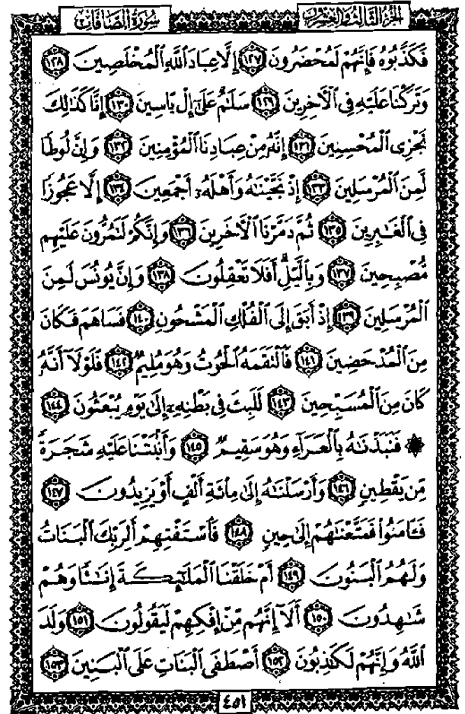 الجزء الثالث والعشرون
سورة الصافات
فَكَذَّبُوهُ فَإِنَّهُمْ لَمُحْضَرُونَ ١٢٧ إِلَّا عِبَادَ ٱللَّهِ ٱلْمُخْلَصِينَ ١٢٨
وَتَرَكْنَا عَلَيْهِ فِى ٱلْآخِرِينَ ١٢٩ سَلَٰمٌ عَلَىٰٓ إِلْ يَاسِينَ ١٣٠ إِنَّا كَذَٰلِكَ
نَجْزِى ٱلْمُحْسِنِينَ ١٣١ إِنَّهُۥ مِنْ عِبَادِنَا ٱلْمُؤْمِنِينَ ١٣٢ وَإِنَّ لُوطًا
لَّمِنَ ٱلْمُرْسَلِينَ ١٣٣ إِذْ نَجَّيْنَٰهُ وَأَهْلَهُۥٓ أَجْمَعِينَ ١٣٤ إِلَّا عَجُوزًا
فِى ٱلْغَٰبِرِينَ ١٣٥ ثُمَّ دَمَّرْنَا ٱلْآخَرِينَ ١٣٦ وَإِنَّكُمْ لَتَمُرُّونَ عَلَيْهِم
مُّصْبِحِينَ ١٣٧ وَبِٱلَّيْلِ أَفَلَا تَعْقِلُونَ ١٣٨ وَإِنَّ يُونُسَ لَمِنَ
ٱلْمُرْسَلِينَ ١٣٩ إِذْ أَبَقَ إِلَى ٱلْفُلْكِ ٱلْمَشْحُونِ ١٤٠ فَسَاهَمَ فَكَانَ
مِنَ ٱلْمُدْحَضِينَ ١٤١ فَٱلْتَقَمَهُ ٱلْحُوتُ وَهُوَ مُلِيمٌ ١٤٢ فَلَوْلَآ أَنَّهُۥ
كَانَ مِنَ ٱلْمُسَبِّحِينَ ١٤٣ لَلَبِثَ فِى بَطْنِهِۦٓ إِلَىٰ يَوْمِ يُبْعَثُونَ ١٤٤
۞ فَنَبَذْنَٰهُ بِٱلْعَرَآءِ وَهُوَ سَقِيمٌ ١٤٥ وَأَنۢبَتْنَا عَلَيْهِ شَجَرَةً
مِّن يَقْطِينٍ ١٤٦ وَأَرْسَلْنَٰهُ إِلَىٰ مِا۟ئَةِ أَلْفٍ أَوْ يَزِيدُونَ ١٤٧
فَـَٔامَنُوا۟ فَمَتَّعْنَٰهُمْ إِلَىٰ حِينٍ ١٤٨ فَٱسْتَفْتِهِمْ أَلِرَبِّكَ ٱلْبَنَاتُ
وَلَهُمُ ٱلْبَنُونَ ١٤٩ أَمْ خَلَقْنَا ٱلْمَلَٰٓئِكَةَ إِنَٰثًا وَهُمْ
شَٰهِدُونَ ١٥٠ أَلَآ إِنَّهُم مِّنْ إِفْكِهِمْ لَيَقُولُونَ ١٥١ وَلَدَ
ٱللَّهُ وَإِنَّهُمْ لَكَٰذِبُونَ ١٥٢ أَصْطَفَى ٱلْبَنَاتِ عَلَى ٱلْبَنِينَ ١٥٣
٤٥١